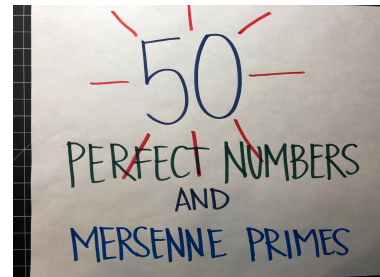 50
PERFECT NUMBERS
AND
MERSENNE PRIMES